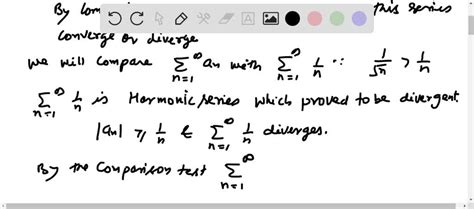 By this series
Converge or diverge
We will compare ∞∑n=1 an with ∞∑n=1 1/n ∵ 1/√n > 1/n
∞∑n=1 1/n is Harmonic series which proved to be divergent.
|an| ⩾ 1/n & ∞∑n=1 1/n diverges.
By the Comparison test ∞∑n=1